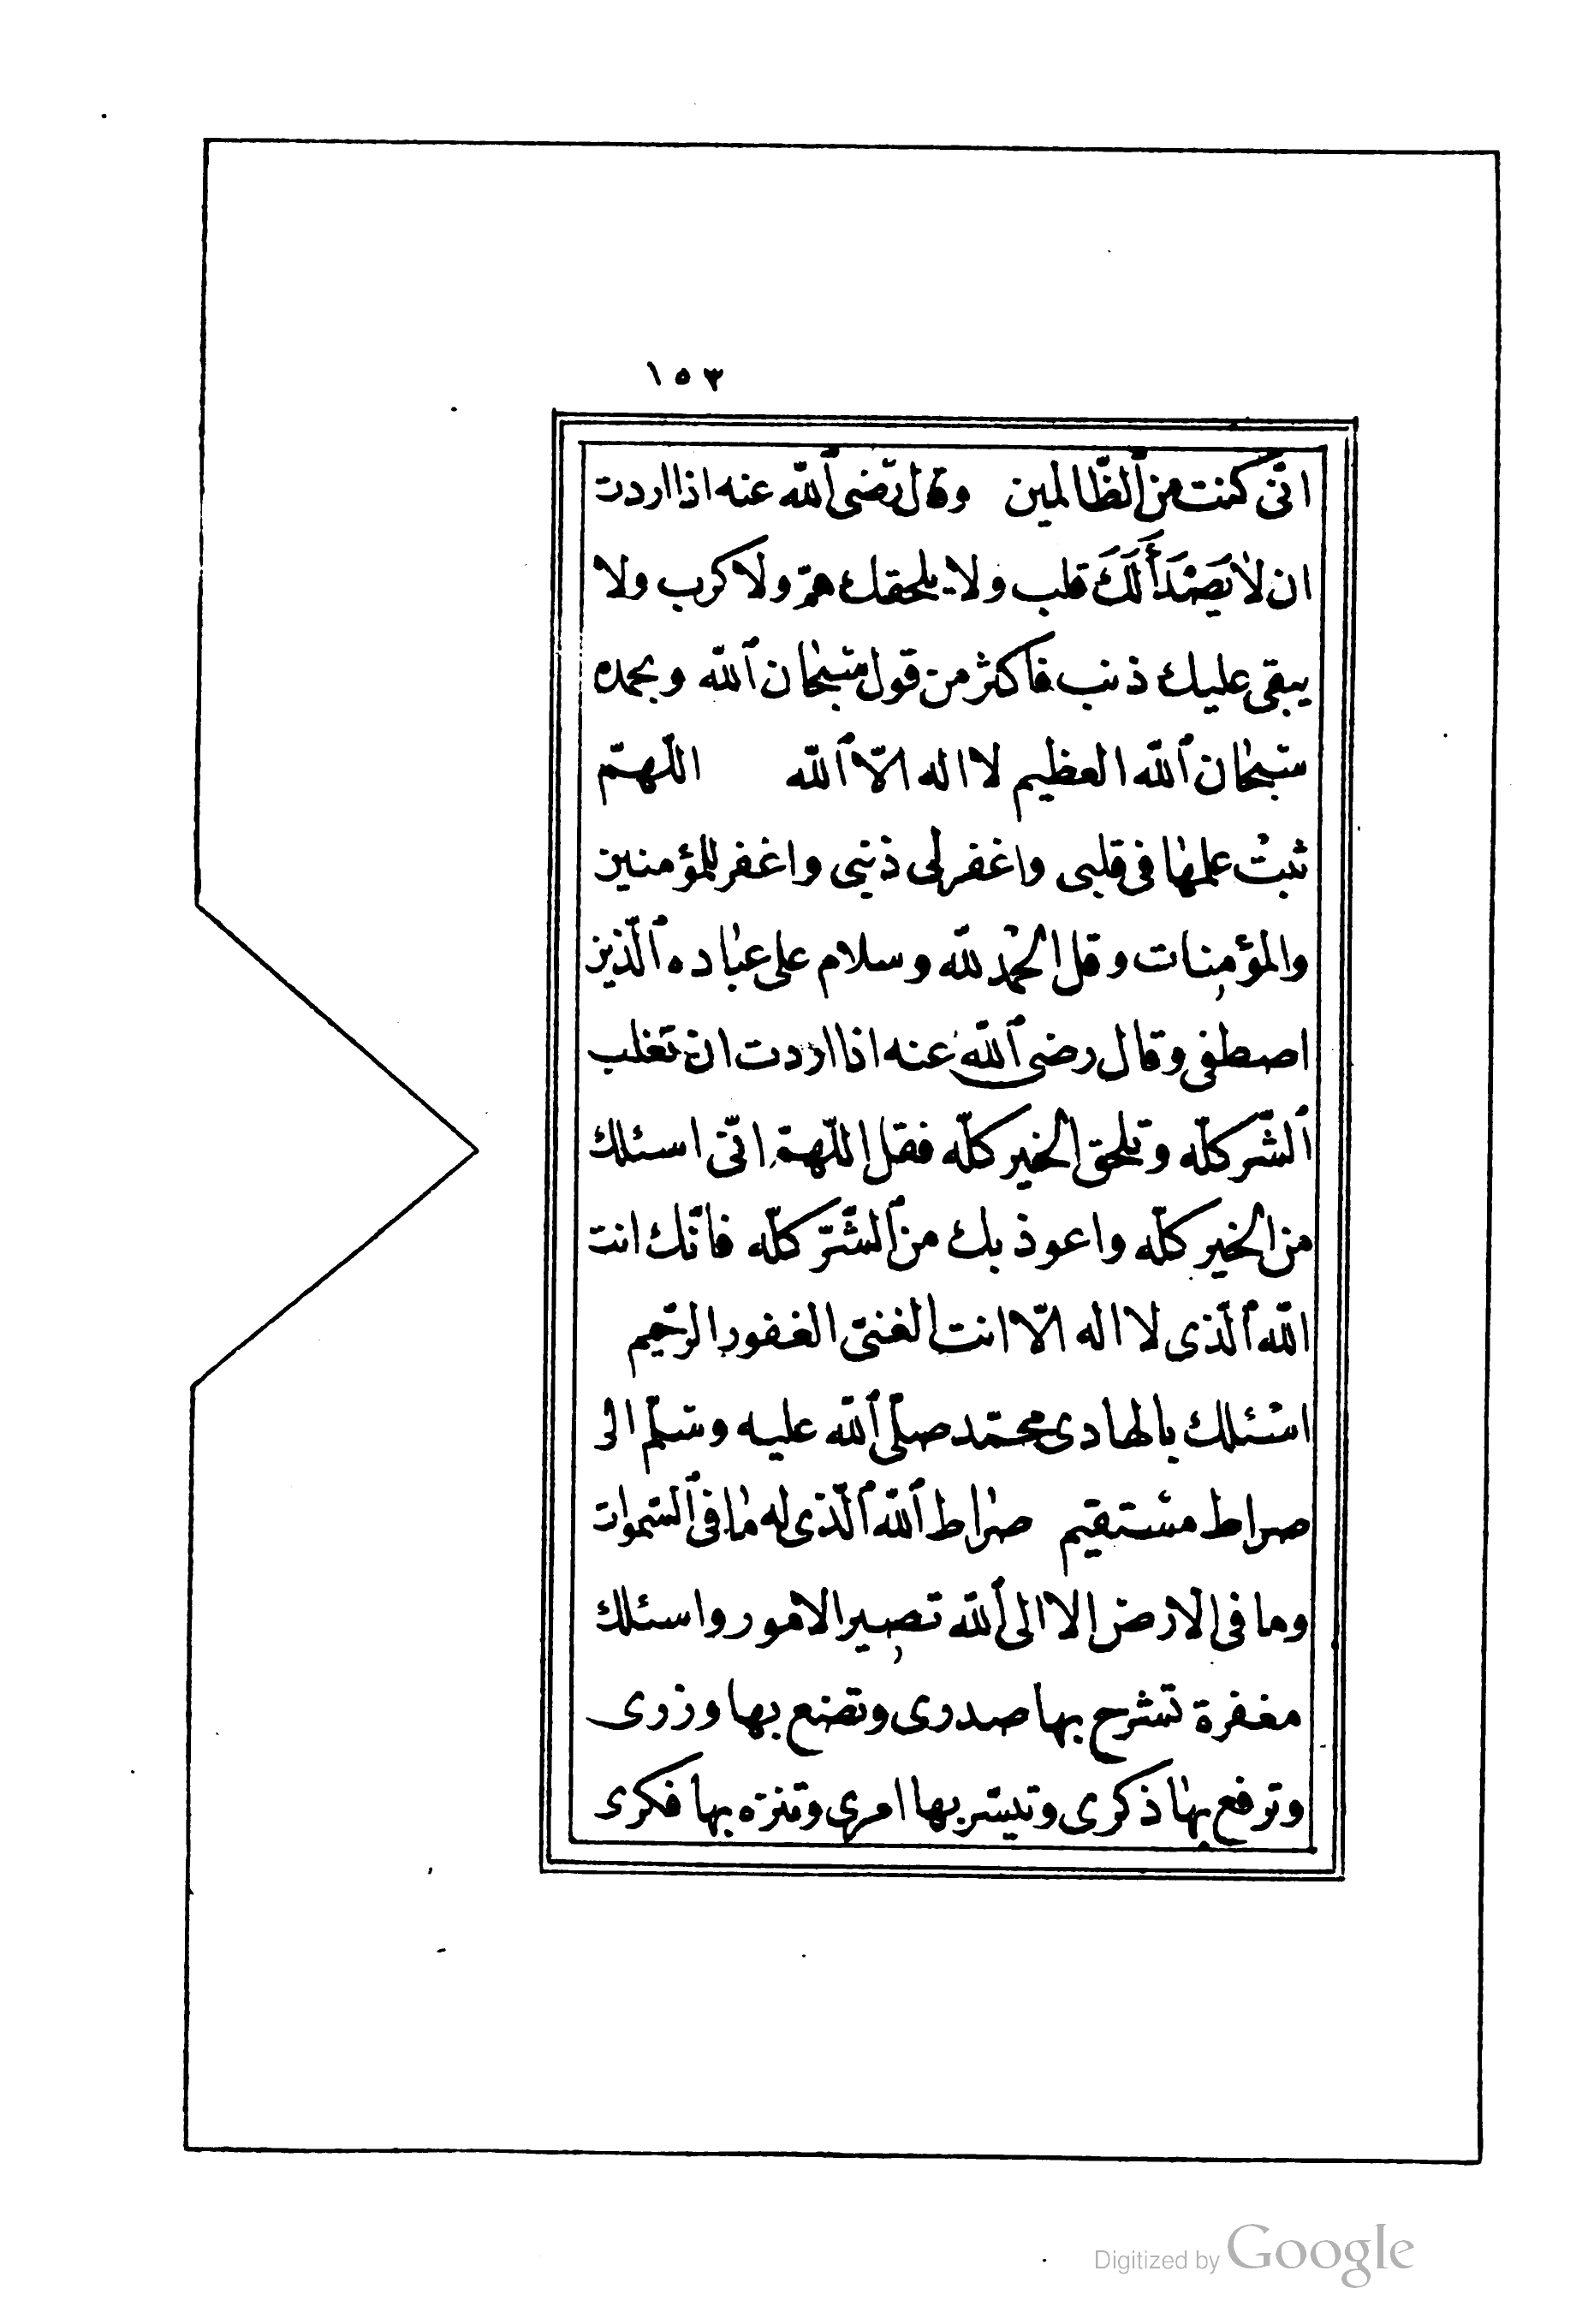 ١٥٣
انّى كنت من ٱلظّالمين وقال رَضى ٱللّه عنه اذا اردت
ان لا يَصْدَأَ لَكَ قلب ولا يلحقك همّ ولا كرب ولا
يبقى عليك ذنب فاكثر من قول سُبحٰان ٱللّه وبحمده
سُبحٰان ٱللّه العظيم لا اله الّا ٱللّه اللّهمّ
ثبتْ علمهٰا فى قلبى واغفر لى ذنبى واغفر للمؤمنين
والمؤمِنات وقل الحمْد للّه وسلام على عبٰاده ٱلّذين
اصطفى وقال رضى ٱللّه عنه اذا اردت ان تَغلب
ٱلشّر كلّه وتلحق الخير كلّه فقل اللّهمّ انّى اسئلك
من الخير كلّه واعوذ بك من ٱلشّرّ كلّه فانّك انت
اللّه ٱلّذى لا اله الّا انت الغنىّ الغفور الرّحيم
اسْئلك بالهادى محمّد صلّى ٱللّه عليه وسَلّم الى
صراط مسْتقيم صرٰاط ٱللّه ٱلّذى له مٰا فى ٱلسّموات
وما فى الارض الا الى ٱللّه تصِير الامور واسئلك
مغفرة تشرح بها صدرى وتضع بها وزرى
وترفع بهٰا ذكرى وتيسّر بها امرى وتنزّه بها فكرى
Digitized by Google